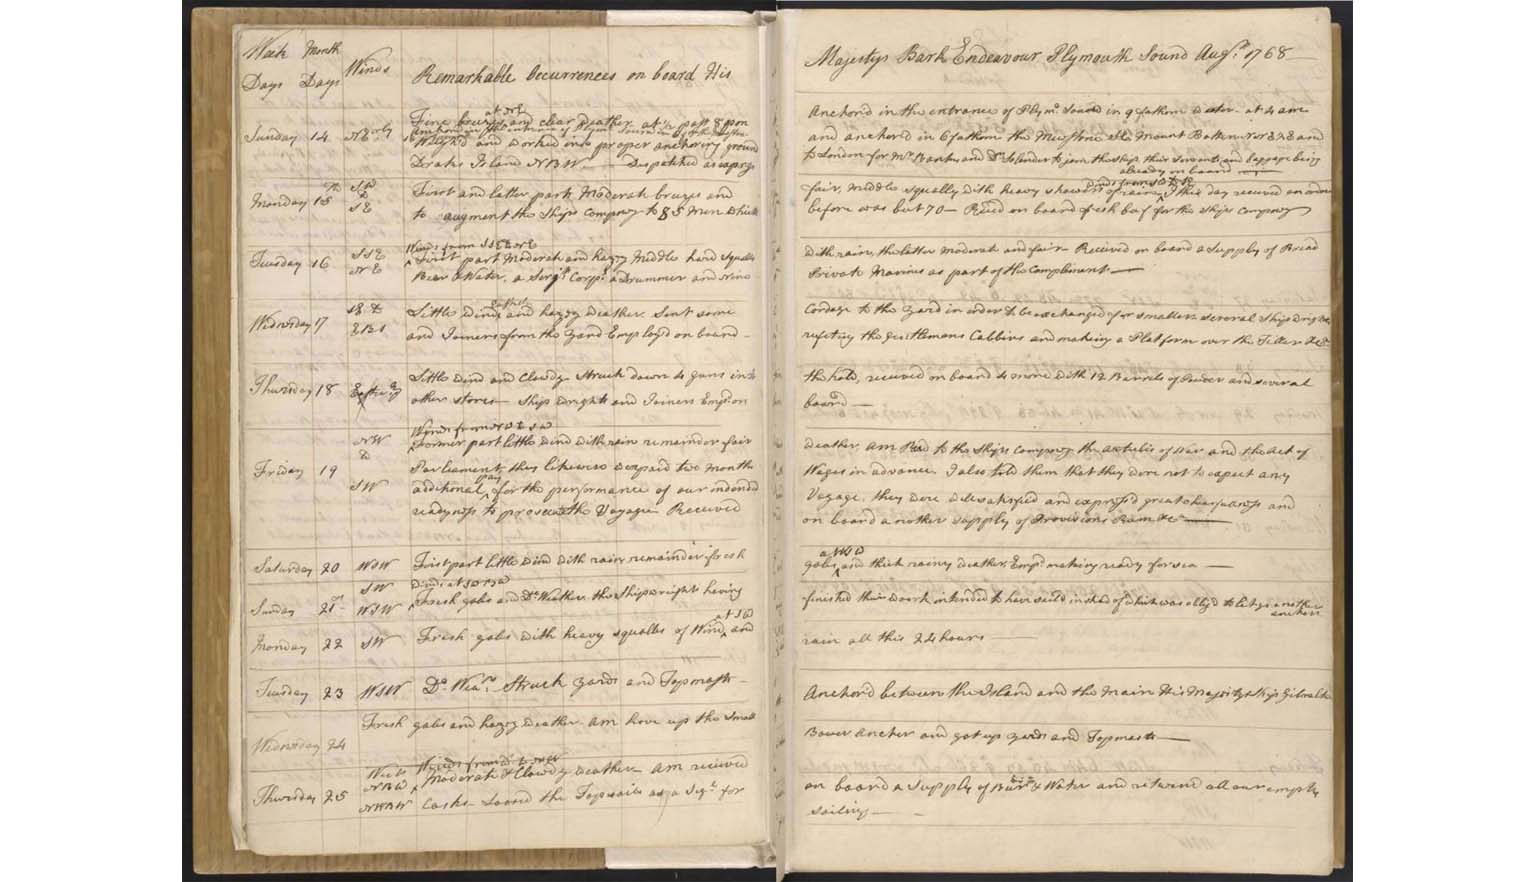 Week Month
Days Days Winds Remarkable Occurrences on board His
Majestys Bark Endeavour Plymouth Sound Augst 1768
at NE
Sunday 14 NE Fine breezes and clear Weather at ½ past 8 pm
Anchord in the entrance of Plymo Sound in 9 fathom Water. at 4 am
Weigh'd and worked into proper anchoring ground
and anchord in 6 fathom the Mewstone SE Mount Batten NNE and
Drake Island NBW Dispatched an express
to London for Mr Banks and Dr Solander to join the ship, their Servants and baggage being
already on board
Monday 15th SW to SE First and latter part Moderate breezes and
Winds from SW to SE
fair, Middle squally with heavy showers of rain, I this day received an order
to augment the Ships Company to 85 Men which
before was but 70 Reced on board fresh beef for the Ships Company
Winds from SSE to NE
Tuesday 16 SSE NE First part Moderate and hazey Middle hard squalls
with rain, the latter Moderate and fair Received on board a Supply of Bread
Beer & Water. a Sergt Corpl a Drummer and Nine
Private Marines as part of the Compliment
Easterly
Wednesday 17 SE to EBS Little Wind and hazey Weather Sent some
Cordage to the yard in order to be exchanged for smaller. several Ships Wrights
and Joiners from the yard Employ'd on board
refiting the Gentlemens Cabbins and making a Platform over the Tiller &ca
Thursday 18 Easterly Little Wind and Clowdy Struck down 4 guns into
the hold, received on board 4 more with 12 Barrels of Powder and several
other stores Ships Wrights and Joiners Empd on
board
Winds from NW to SW
Friday 19 NW to SW Former part little Wind with rain remainder fair
Weather AM Read to the Ships Company the articles of War and the Act of
Parliament, they likewise were paid two Months
Wages in advance. I also told them that they were not to expect any
additional pay for the performance of our intended
Voyage, they were well satisfied and express'd great chearfulness and
readyness to prosecute the Voyage Received
on board another supply of Provisions Rum &ca
Saturday 20 WSW First part little Wind with rain remainder fresh
at WSW
gales and thick rainy Weather. Empd making ready for sea
Winds at SW
Sunday 21st SW WSW Fresh gales and Do Weather. the Shipwrights having
finished their work intended to have saild instead of which was oblig'd to let go another
anchor
at SW
Monday 22 SW Fresh gales with heavy squalls of Wind and
rain all this 24 hours
Tuesday 23 WSW Do Wear. Struck yards and Topmasts
Anchord between the Island and the Main His Majestys Ship Gibralter
Wednesday 24 Fresh gales and hazey Weather AM hove up the Small
Bower Anchor and got up yards and Topmasts
Thursday 25 NBW NWBW Moderate & Clowdy Weather AM received
on board a Supply of Beer & Water and returnd all our empty
Casks Loosed the Topsails as a Sigl for
Sailing